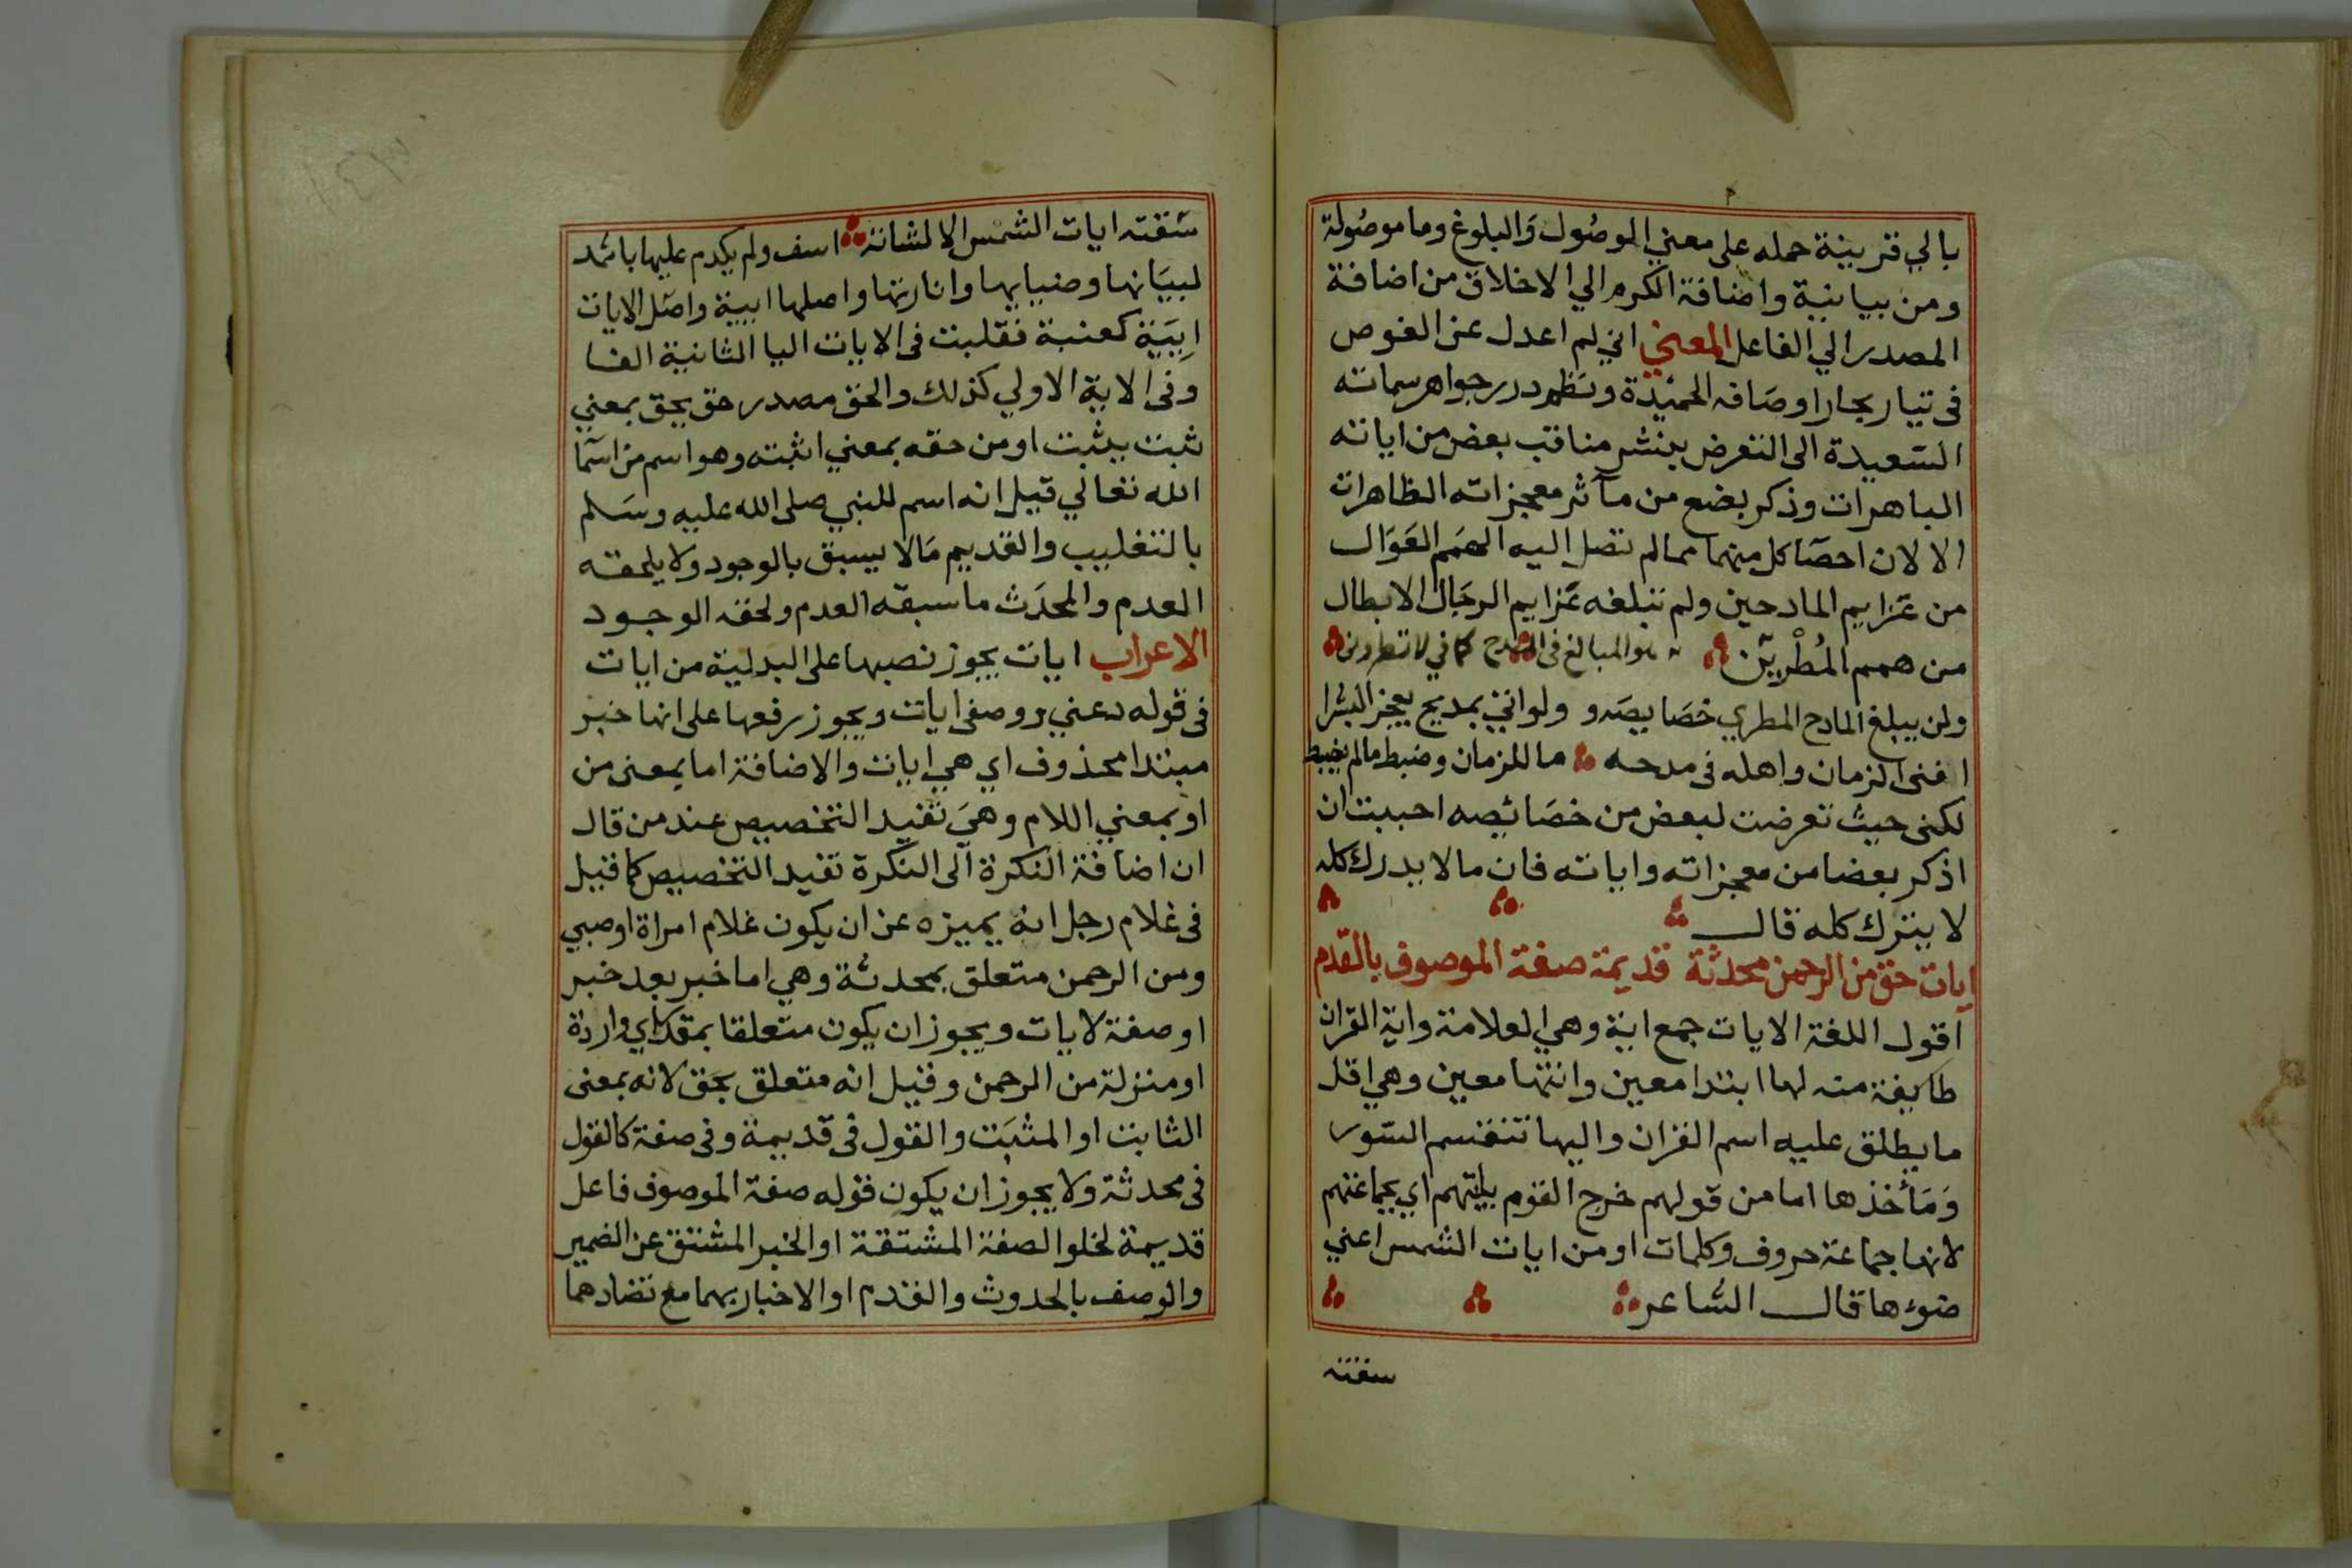 بالي قرينة حمله على معني الوصُول وَالبلوغ وما موصُولة
ومن بيانية واضافة الكرم الي الاخلاق من اضافة
المصدر الي الفاعل المعني اني لم اعدل عن الغوص
فى تيار بحار اوصَافه الحميْدة ونظم درر جواهر سماته
السّعيدة الى التعرض بنشر مناقب بعض من اياته
الباهرات وذكر بضع من مآثر معجزاته الظاهرات
الا لان احصَا كل منهما مما لم تصل اليه الهمَم العَوَال
من عَزايم المادحين ولم تبلغه عَزايم الرجَال الابطال
من همم المُطْرِيْن هو المبالغ فى المدح كما في لا تطروني
ولن يبلغ المادح المطري خصَايصَه ولو اتيْ بمديح يعجز البشرا
افنى الزمان واهله فى مدحه ما للزمان وضبط ما لم يضبط
لكنى حيث تعرضت لبعض من خصَائصه احببت ان
اذكر بعضا من معجزاته واياته فان ما لا يدرك كله
لا يترك كله قال
ايات حق من الرحمن محدثة قديمة صفة الموصوف بالقدم
اقول اللغة الايات جمع اية وهي العلامة واية القران
طايفة منه لها ابتدا معين وانتها معين وهي اقل
ما يطلق عليه اسم القران واليها تنقسم السّور
وَمَأخذها اما من قولهم خرج القوم بايتهم اي بجماعتهم
لانها جماعة حروف وكلمات او من ايات الشمس اعني
ضوءها قال الشاعر
سقته
سَقته ايات الشمس الا لثاته اسف ولم يكدم عليها باثمد
لبيَانها وضيايها وانارتها واصلها ايية واصَل الايات
اِيَيَة كعنبة فقلبت فى الايات اليا الثانية الفا
وفى الاية الاولي كذلك والحق مصدر حق يحق بمعني
ثبت يثبت او من حقه بمعني اثبته وهو اسم من اسمَا
الله تعالي قيل انه اسم للنبي صلى الله عليه وسَلم
بالتغليب والقديم مَا لا يسبق بالوجود ولا يلحقه
العدم والمحدَث ما سبقه العدم ولحقه الوجود
الاعراب ايات يجوز نصبها على البدلية من ايات
فى قوله دعني ووصفى ايات ويجوز رفعها على انها خبر
مبتدا محذوف اي هي ايات والاضافة اما بمعنى من
او بمعني اللام وهيَ تفيد التخصيص عند من قال
ان اضافة النكرة الى النكرة تفيد التخصيص كما قيل
فى غلام رجل انه يميزه عن ان يكون غلام امراة او صبي
ومن الرحمن متعلق بمحدثة وهي اما خبر بعد خبر
او صفة لايات ويجوز ان يكون متعلقا بمقدر اي واردة
او منزلة من الرحمن وقيل انه متعلق بحَق لانه بمعنى
الثابت او المثبَت والقول فى قديمة وفى صفة كالقول
فى محدثة ولا يجوز ان يكون قوله صفة الموصوف فاعل
قديمة لخلو الصفة المشتقة او الخبر المشتق عن الضمير
والوصف بالحدوث والقدم او الاخبار بهما مع تضادهما